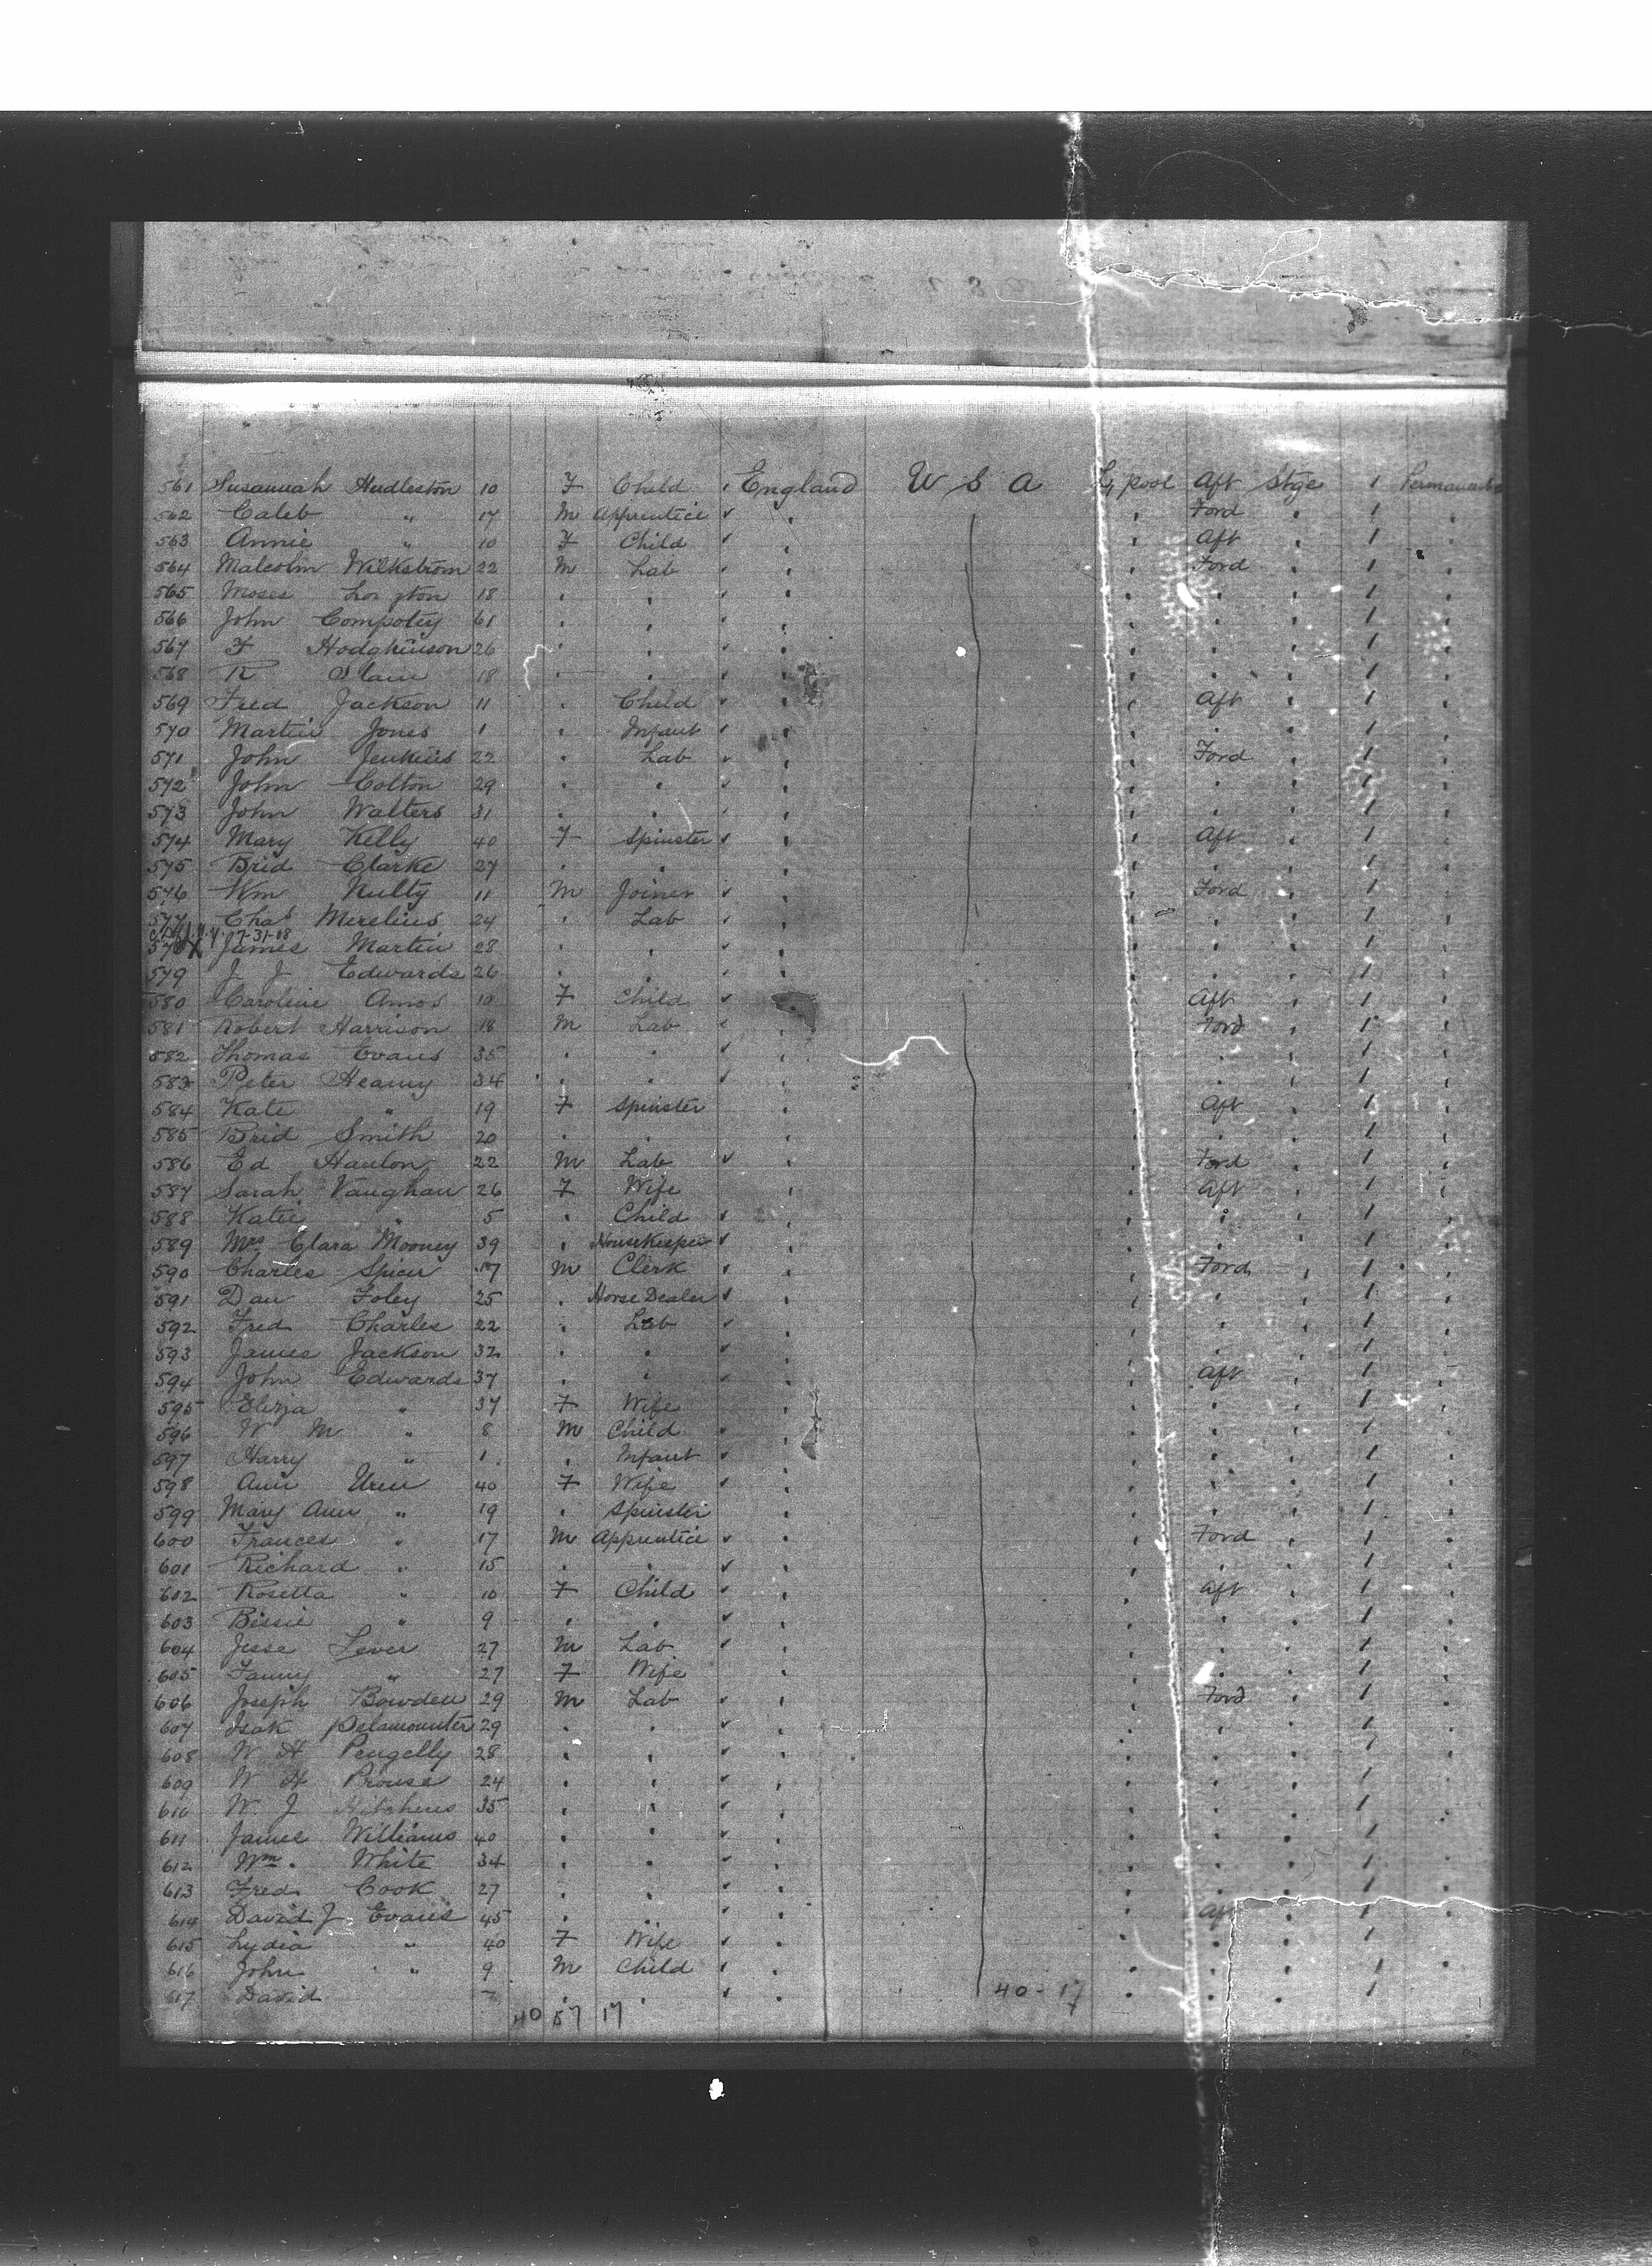 561 Susannah Hudleston 10 F Child England U S A L,pool Aft Stge 1 Permanent
562 Caleb " 17 M Apprentice Ford 1
563 Annie " 10 F Child Aft 1
564 Malcolm Wilkstrom 22 M Lab Ford 1
565 Moses 18 1
566 John Compoty 61 1
567 F Hodgkinson 26 1
568 R 18 1
569 Fred Jackson 11 Child Aft 1
570 Martin Jones 1 Infant 1
571 John Jenkins 22 Lab Ford 1
572 John Colton 29 1
573 John Walters 31 1
574 Mary Kelly 40 F Spinster Aft 1
575 Brid Clarke 27 1
576 Wm Nulty 11 M Joiner Ford 1
577 Chas Merelius 24 Lab 1
7-31-08
578 X James Martin 28 1
579 J J Edwards 26 1
580 Caroline Amos 10 F Child Aft 1
581 Robert Harrison 18 M Lab Ford 1
582 Thomas Evans 35 1
583 Peter Heavny 34 1
584 Kate " 19 F Spinster Aft 1
585 Brid Smith 20 1
586 Ed Hanlon 22 M Lab Ford 1
587 Sarah Vaughan 26 F Wife Aft 1
588 Katie " 5 Child 1
589 Mrs Clara Mooney 39 Housekeeper 1
590 Charles Spicer 17 M Clerk Ford 1
591 Dan Foley 25 Horse Dealer 1
592 Fred Charles 22 Lab 1
593 James Jackson 32 1
594 John Edwards 37 Aft 1
595 Eliza " 37 F Wife 1
596 W M " 8 M Child 1
597 Harry " 1 Infant 1
598 Ann Uren 40 F Wife 1
599 Mary Ann " 19 Spinster 1
600 Frances " 17 M Apprentice Ford 1
601 Richard " 15 1
602 Rosetta " 10 F Child Aft 1
603 Bessie " 9 1
604 Jesse Lever 27 M Lab 1
605 Fanny " 27 F Wife 1
606 Joseph Bowden 29 M Lab Ford 1
607 Isak Pelsmounter 29 1
608 W H Pengelly 28 1
609 W H Prouse 24 1
610 W. J Hitchens 35 1
611 James Williams 40 1
612 Wm. White 34 1
613 Fred Cook 27 1
614 David J Evans 45 Aft 1
615 Lydia " 40 F Wife 1
616 John " 9 M Child 1
617 David 7 1
40 57 17 40-17